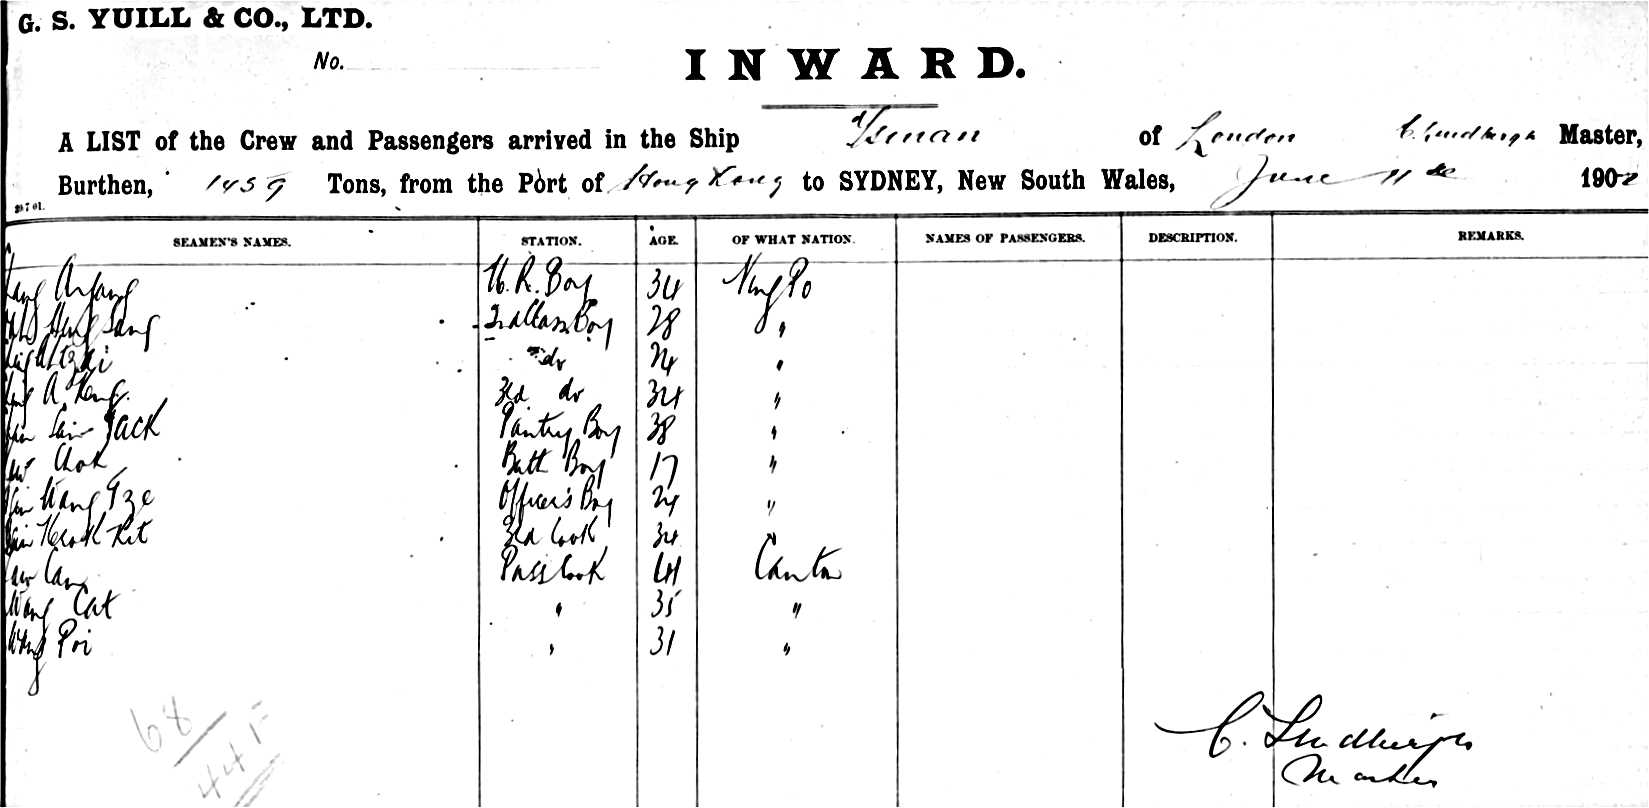 G. S. YUILL & CO., LTD.
No.
INWARD.
A LIST of the Crew and Passengers arrived in the Ship Tsinan of London C. Lindbergh Master,
Burthen, 1459 Tons, from the Port of Hong Kong to SYDNEY, New South Wales, June 11th 1902
SEAMEN'S NAMES. STATION. AGE. OF WHAT NATION. NAMES OF PASSENGERS. DESCRIPTION. REMARKS.
Boy 34 Ning Po
Sang 2nd Class Boy 28 "
do 24 "
A. Heng. 3rd do 34 "
Jack Pantry Boy 38 "
Chok Bath Boy 17 "
Wang Tze Officer's Boy 24 "
3rd Cook 34 "
Pass Cook 41 Canton
Wang Cat " 35 "
Wang Poi " 31 "
68
44 F
C. Lindbergh
Master